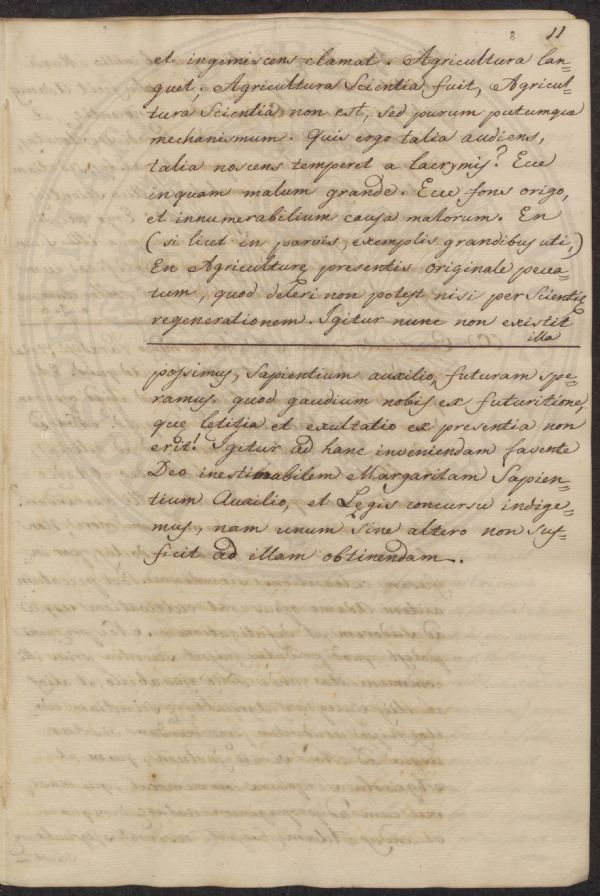 8 11
et ingemiscens clamat. Agricultura lan=
guet; Agricultura Scientia fuit, Agricul=
tura Scientia non est, sed purum putumque
mechanismum. Quis ergo talia audiens,
talia noscens temperet a lacrymis? Ecce
inquam malum grande. Ecce fons origo,
et innumerabilium causa malorum. En
(si licet in parvis, exemplis grandibus uti,)
En Agriculturę presentis originale pecca=
tum, quod deleri non potest nisi per Scientię
regenerationem. Igitur nunc non existit
illa
possimus, Sapientium auxilio, futuram spe=
ramus. quod gaudium nobis ex futuritione,
que letitia et exultatio ex presentia non
erit! Igitur ad hanc inveniendam favente
Deo inestimabilem Margaritam Sapien=
tium Auxilio, et Legis concursu indige=
mus, nam unum sine altero non suf=
ficit ad illam obtinendam.